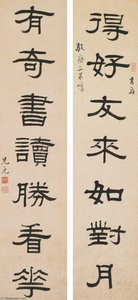 得好友來如對月
有奇書讀勝看華